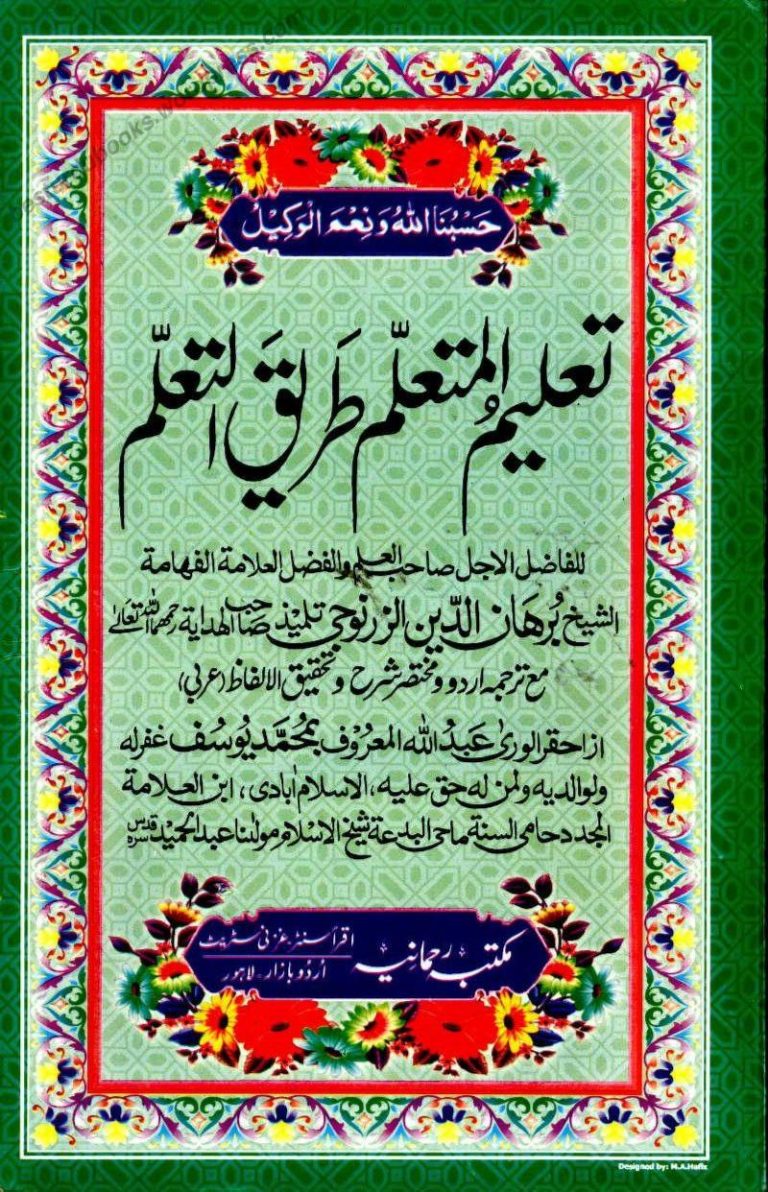 حَسْبُنَا اللهُ وَنِعْمَ الْوَكِيْلُ
تعلیمُ المتعلّم طَرِیقَ التعلّم
للفاضل الاجل صاحب العلم والفضل العلامة الفهامة
الشیخ بُرهَان الدّین الزرنوجی تلمیذ صَاحب الهدایة رحمهما اللہ تعالٰے
مع ترجمہ اردو و مختصر شرح و تحقیق الالفاظ (عربی)
از احقر الوریٰ عَبدُ اللہ المعرُوف بمُحمَّد یُوسُف غفرله
ولوالدیه ولمن له حق علیه، الاسلام اٰبادی، ابن العلامة
المجدد حامی السنة ماحی البدعة شیخ الاسلام مولٰنا عبد الحمید قدس سره
مکتبہ رحمانیہ
اقرأ سنٹر غزنی سٹریٹ
اُردو بازار - لاہور
Designed by: M.A.Hafix